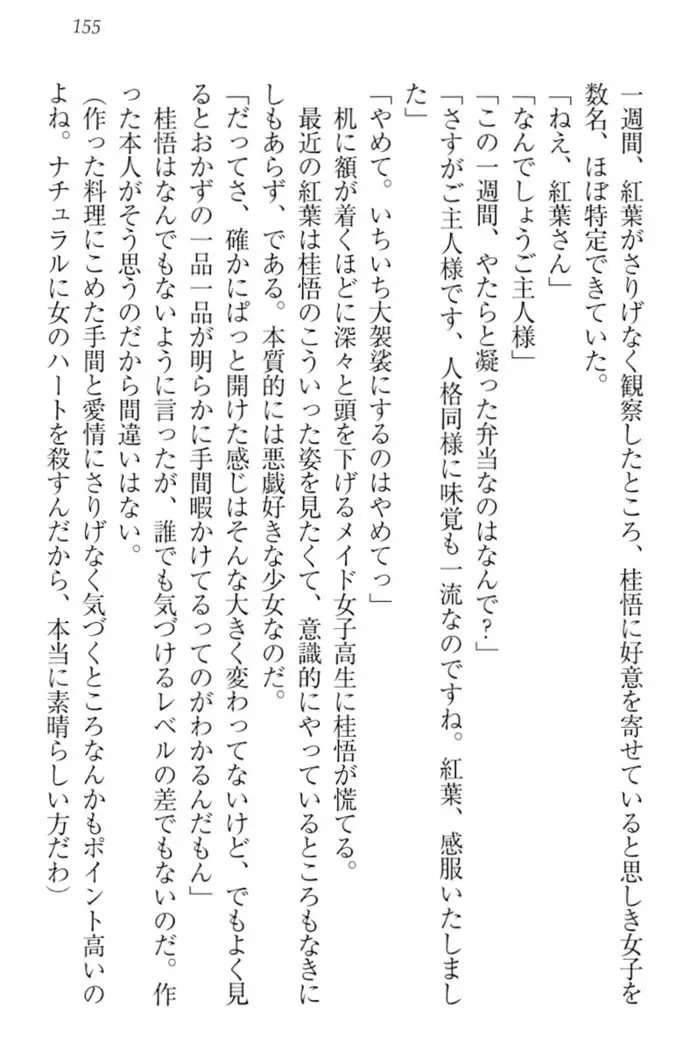 155
一週間、紅葉がさりげなく観察したところ、桂悟に好意を寄せていると思しき女子を
数名、ほぼ特定できていた。
「ねえ、紅葉さん」
「なんでしょうご主人様」
「この一週間、やたらと凝った弁当なのはなんで?」
「さすがご主人様です、人格同様に味覚も一流なのですね。紅葉、感服いたしまし
た」
「やめて。いちいち大袈裟にするのはやめてっ」
机に額が着くほどに深々と頭を下げるメイド女子高生に桂悟が慌てる。
最近の紅葉は桂悟のこういった姿を見たくて、意識的にやっているところもなきに
しもあらず、である。本質的には悪戯好きな少女なのだ。
「だってさ、確かにぱっと開けた感じはそんな大きく変わってないけど、でもよく見
るとおかずの一品一品が明らかに手間暇かけてるってのがわかるんだもん」
桂悟はなんでもないように言ったが、誰でも気づけるレベルの差でもないのだ。作
った本人がそう思うのだから間違いはない。
(作った料理にこめた手間と愛情にさりげなく気づくところなんかもポイント高いの
よね。ナチュラルに女のハートを殺すんだから、本当に素晴らしい方だわ)